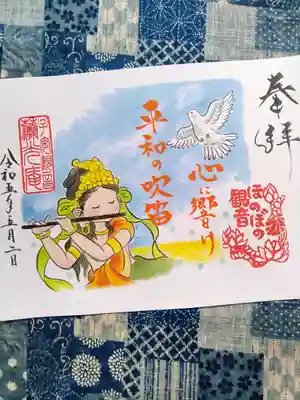 奉拝
心に響け
平和の吹笛
ほのぼの
観音
令和五年五月二日